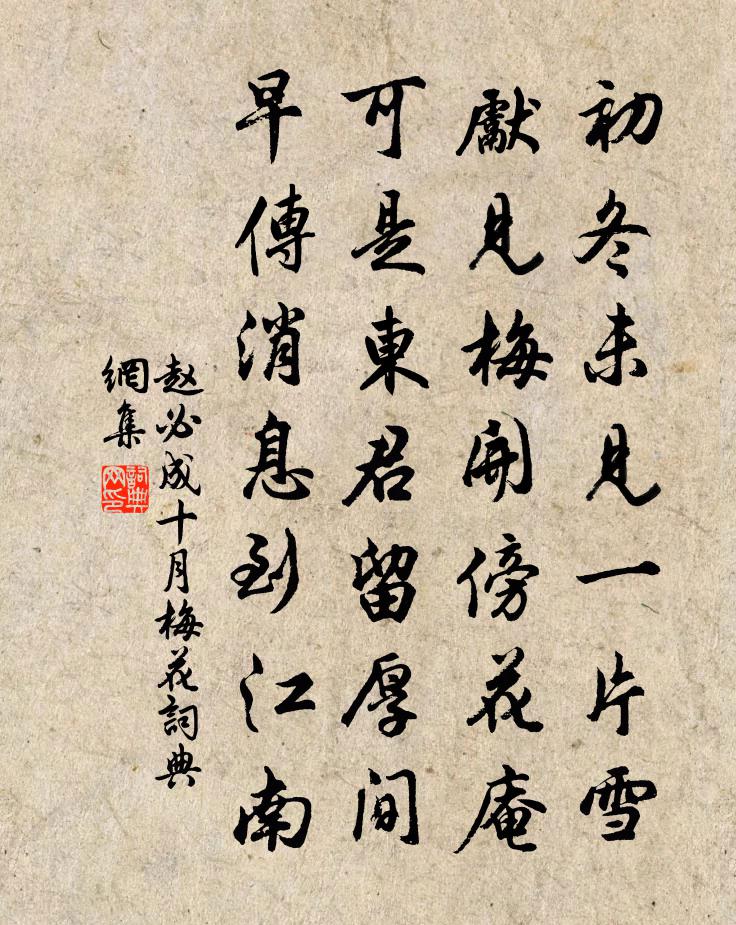 初冬未見一片雪
獻見梅開傍花庵
可是東君留厚間
早傳消息到江南
赵必成十月梅花詞典
網集
詞典
网印